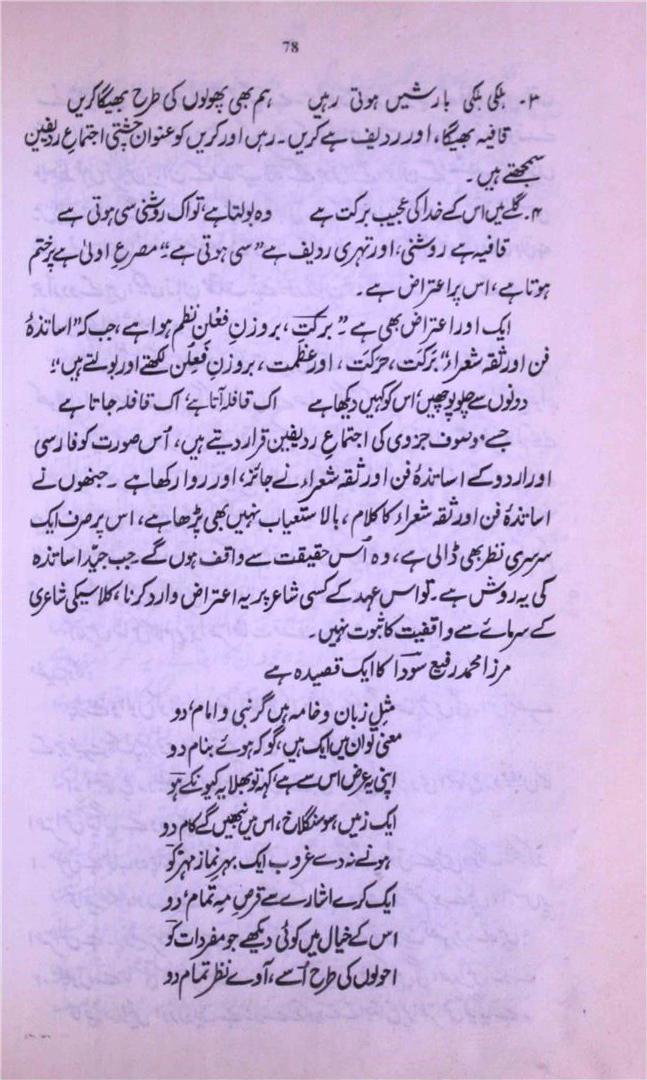 78
۳۔ ہلکی ہلکی بارشیں ہوتی رہیں ہم بھی پھولوں کی طرح بھیگا کریں
قافیہ بھیگا، اور ردیف ہے کریں۔ رہیں اور کریں کو عنوان چشتی اجتماعِ ردیفین
سمجھتے ہیں۔
۴۔ گلے میں اس کے خدا کی عجیب برکت ہے وہ بولتا ہے، تو اک روشنی سی ہوتی ہے
قافیہ ہے روشنی، اور تہری ردیف ہے "سی ہوتی ہے"۔ مصرعِ اولیٰ ہے پر ختم
ہوتا ہے، اس پر اعتراض ہے۔
ایک اور اعتراض بھی ہے۔ "برکت، بروزنِ فعلن نظم ہوا ہے، جب کہ "اساتذۂ
فن اور ثقہ شعراء" برکت، حرکت، اور عظمت، بروزنِ فَعِلُن لکھتے اور بولتے ہیں"؛
دونوں سے چلو پوچھیں، اس کو کہیں دیکھا ہے اک قافلہ آتا ہے، اک قافلہ جاتا ہے
جسے موصوف جزوی کی اجتماعِ ردیفین قرار دیتے ہیں، اُس صورت کو فارسی
اور اردو کے اساتذۂ فن اور ثقہ شعراء نے جائز، اور روا رکھا ہے۔ جنھوں نے
اساتذۂ فن اور ثقہ شعراء کا کلام، بالاستعیاب نہیں بھی پڑھا ہے، اس پر صرف ایک
سرسری نظر بھی ڈالی ہے، وہ اُس حقیقت سے واقف ہوں گے۔ جب جیّد اساتذہ
کی یہ روش ہے۔ تو اس عہد کے کسی شاعر پر یہ اعتراض وارد کرنا، کلاسیکی شاعری
کے سرمائے سے واقفیت کا ثبوت نہیں۔
مرزا محمد رفیع سوداؔ کا ایک قصیدہ ہے
مثلِ زبان و خامہ ہیں گر نبی و امام، دو
معنی تو ان میں ایک ہیں، گو کہ ہوئے بنام دو
اپنی یہ عرض اس سے ہے، کہہ تو بھلا یہ کیونکے ہو
ایک زمیں ہو سنگلاخ، اس میں نبھیں گے کام دو
ہونے نہ دے غروب ایک بہرِ نماز مہر کو
ایک کرے اشارے سے قرصِ مہِ تمام، دو
اس کے خیال میں کوئی دیکھے جو مفردات کو
احولوں کی طرح اُسے، آوے نظر تمام دو